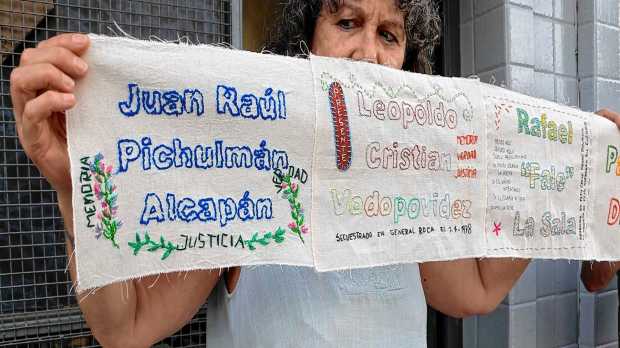 Juan Raúl
Pichulmán
Alcapán
MEMORIA
VERDAD
JUSTICIA
PRESENTE
Leopoldo
Cristian
Vodopovidez
MEMORIA
VERDAD
JUSTICIA
SECUESTRADO EN GENERAL ROCA EL
1978
Rafael
"Falo"
La Sala